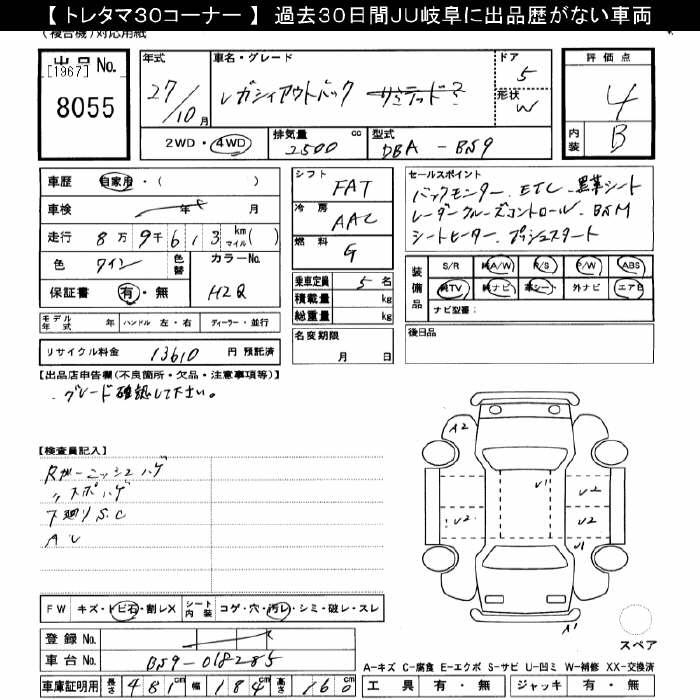 【 トレタマ30コーナー 】 過去30日間JU岐阜に出品歴がない車両
(複合機)対応用紙
出品No.
[1967]
8055
年式
27/10月
車名・グレード
レガシィアウトバック
ドア
5
形状
W
評価点
4
内装
B
2WD・4WD
排気量 2500 cc
型式 DBA-BS9
車歴 自家用・( )
車検 年 月
走行 8万9千613 kmマイル( )
色 ワイン 色替
カラーNo. H2Q
保証書 有・無
モデル年式 年 ハンドル 左・右 ディーラー・並行
リサイクル料金 13610 円 預託済
シフト FAT
冷房 AAC
燃料 G
乗車定員 5 名
積載量 kg
総重量 kg
名変期限
月 日
セールスポイント
バックモニター. ETC. 黒革シート
レーダークルーズコントロール. BSM
シートヒーター. プッシュスタート
装備品
S/R 純A/W P/S P/W ABS
純TV 純ナビ 革シート 外ナビ エアB
ナビ型番:
後日品
【出品店申告欄(不良箇所・欠品・注意事項等)】
.グレード確認して下さい。
【検査員記入】
Rガーニッシュハゲ
〃スポハゲ
下廻りS.C
AU
A2
U1
U2
U2
U2
A1
A1
スペア
FW キズ・トビ石・割レX シート内装 コゲ・穴・汚レ・シミ・破レ・スレ
登録No.
車台No. BS9-018285
車庫証明用 長さ 481cm 幅 184cm 高さ 160cm
A-キズ C-腐食 E-エクボ S-サビ U-凹ミ W-補修 XX-交換済
工具 有・無 ジャッキ 有・無